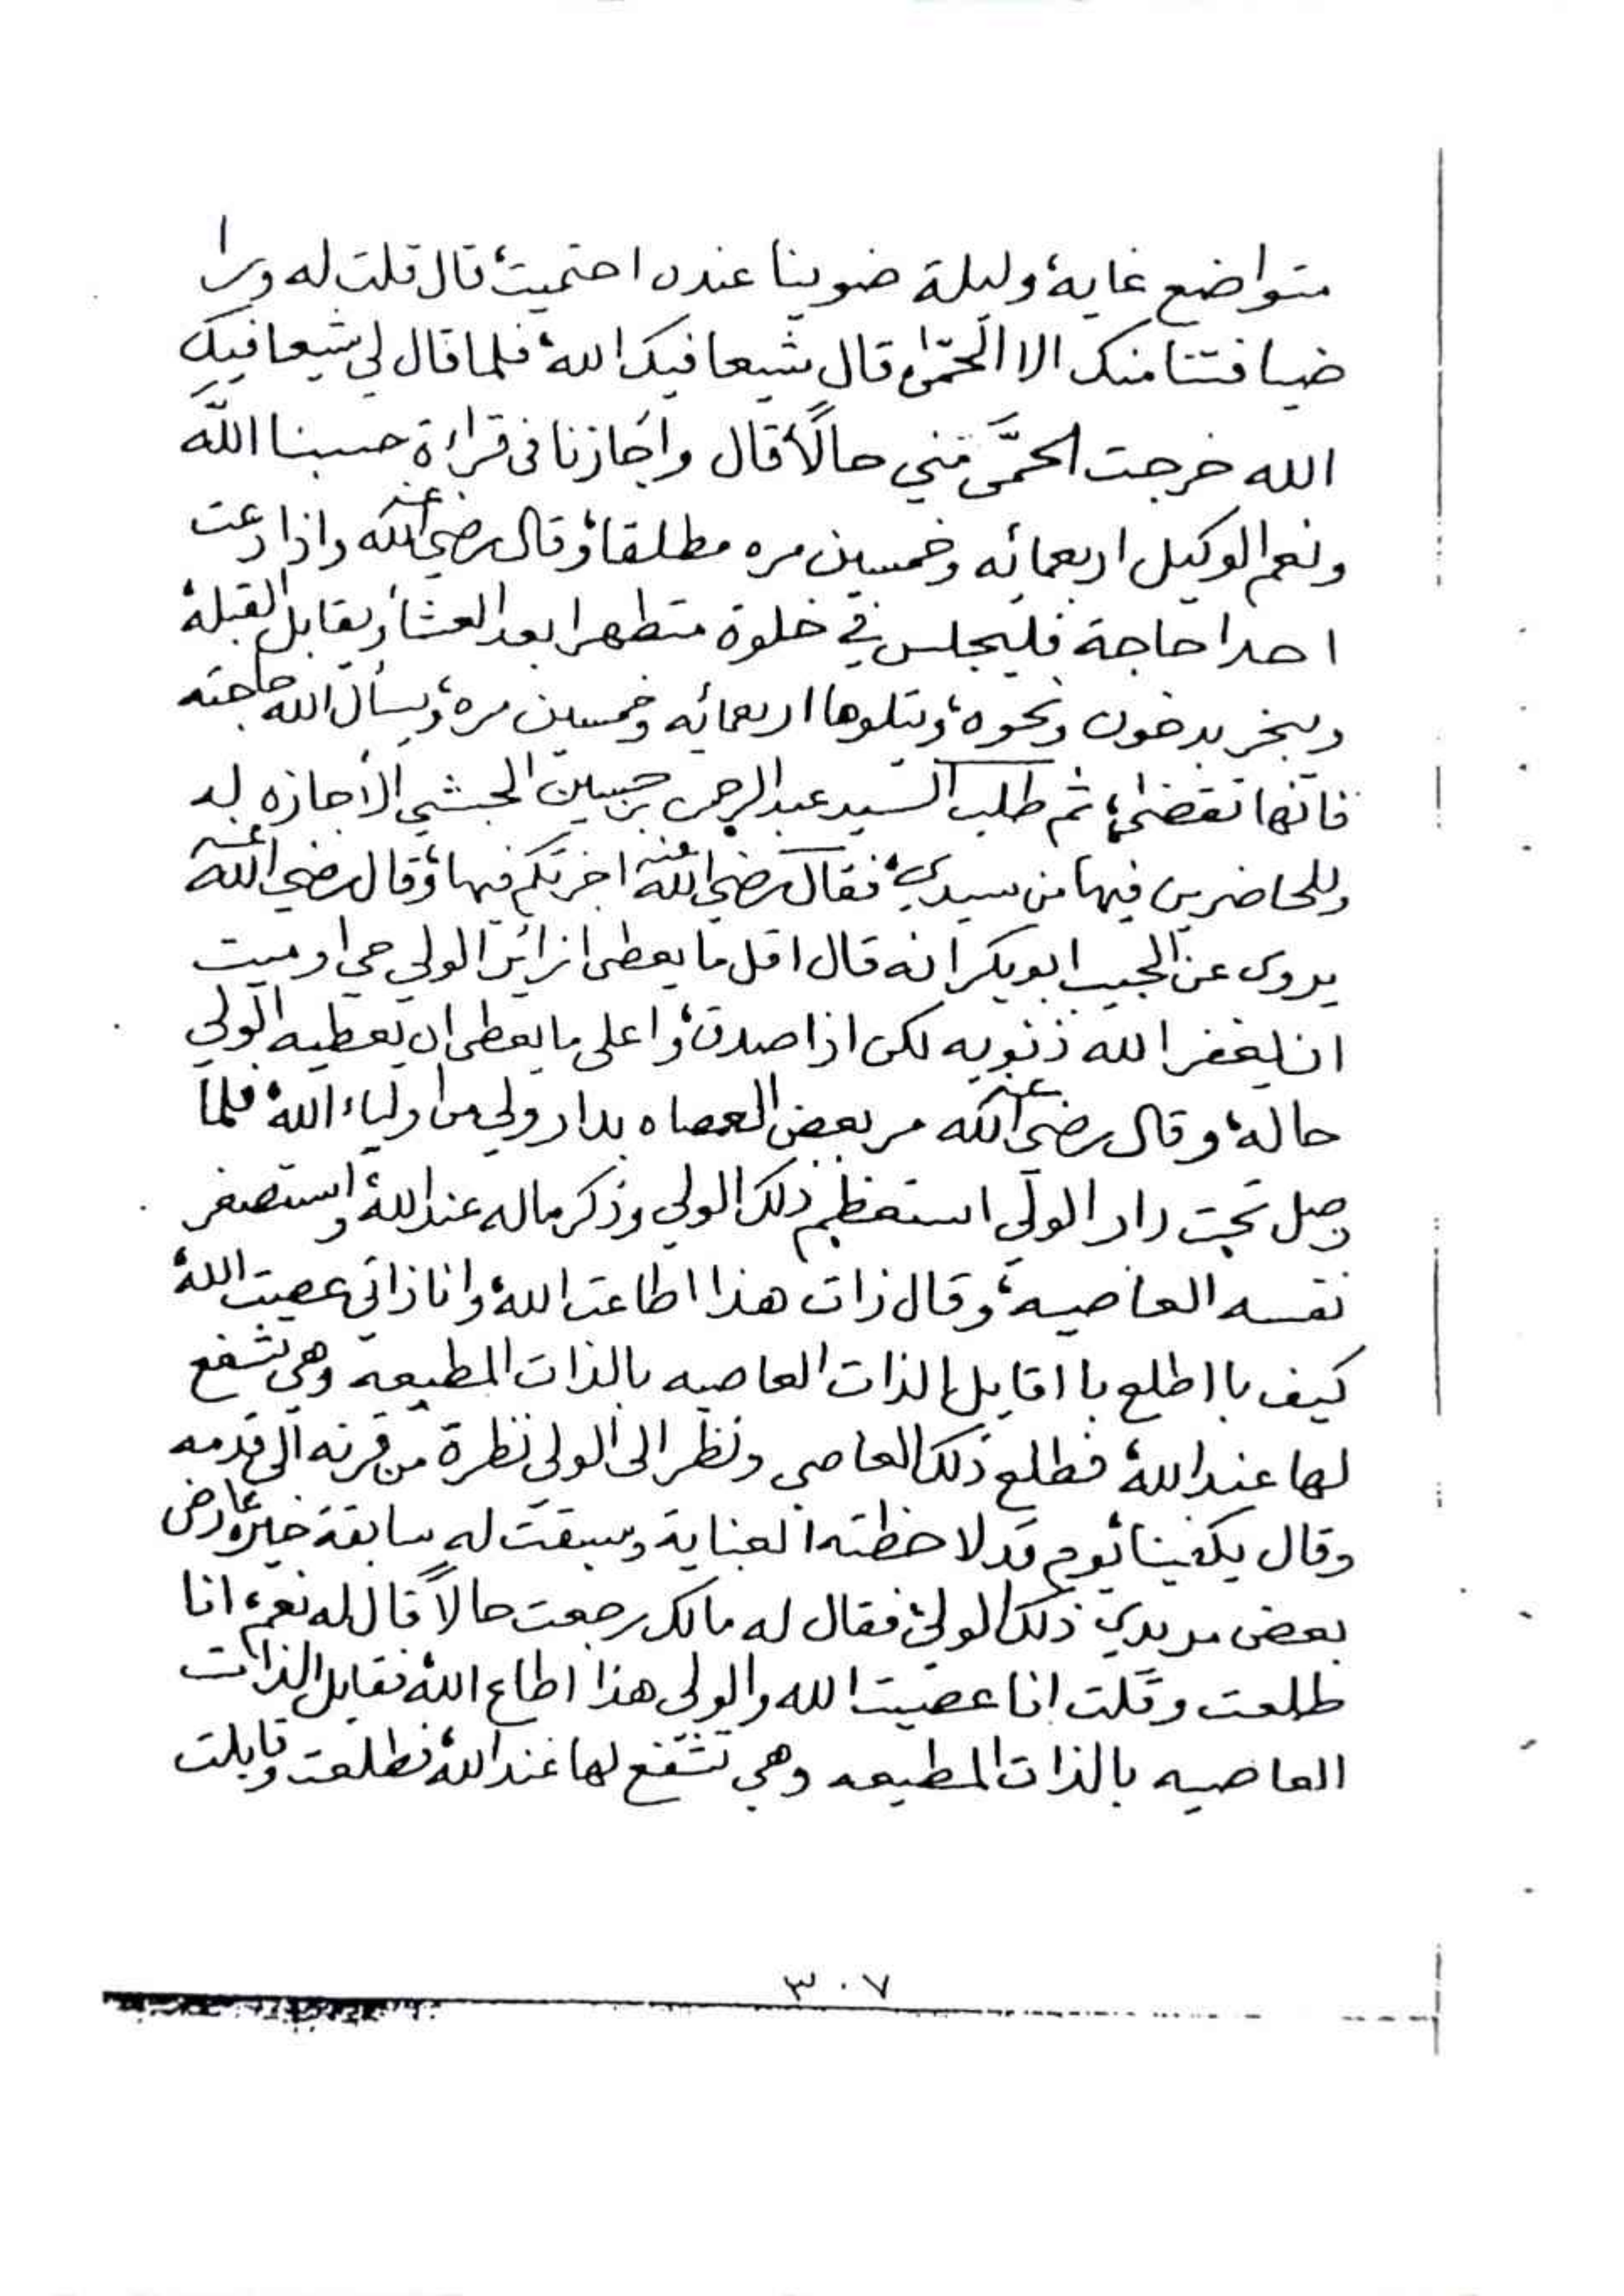 متواضع غايه، وليلة ضوينا عنده احتميت، قال قلت له ورا
ضيافتنا منك الا الحمّى، قال شيعافيك الله، فلما قال لي شيعافيك
الله خرجت الحمَّى مِّني حالًا، قال واجازنا في قراءة حسبنا اللّه
ونعم الوكيل اربعمائه وخمسين مره مطلقا، وقال رضي الله عنه واذا دعت
احدا حاجة فليجلس في خلوة متطهرا بعد العشاء ويقابل القبلة
ويبخر بدخون ونحوه، ويتلوها اربعمائه وخمسين مره، ويسأل الله حاجته
فانها تقضى، ثم طلب السيد عبدالرحمن بن حسين الحبشي الأجازه له
وللحاضرين فيها من سيدي، فقال رضي الله عنه اجزتكم فيها، وقال رضي الله عنه
يروى عن الحبيب ابوبكر انه قال اقل ما يعطى زائر الولي حي او ميت
ان يغفر الله ذنوبه لكن اذا صدق، واعلى ما يعطى ان يعطيه الولي
حاله، وقال رضي الله عنه مر بعض العصاه بدار ولي من اولياء الله، فلما
وصل تحت دار الولي استعظم ذلك الولي وذكر ماله عند الله، واستصغر
نفسه العاصيه، وقال ذات هذا اطاعت الله، وانا ذاتي عصيت الله،
كيف با اطلع با اقابل الذات العاصيه بالذات المطيعه وهي تشفع
لها عند الله، فطلع ذلك العاصي ونظر الى الولي نظرة من قرنه الى قدمه
وقال يكفينا يوم قد لاحظته العناية وسبقت له سابقة خير، عارض
بعض مريدي ذلك الولي، فقال له مالك رجعت حالاً قال له نعم، انا
طلعت وقلت انا عصيت الله والولي هذا اطاع الله، نقابل الذات
العاصيه بالذات المطيعه وهي تشفع لها عند الله، فطلعت وقابلت
٣٠٧